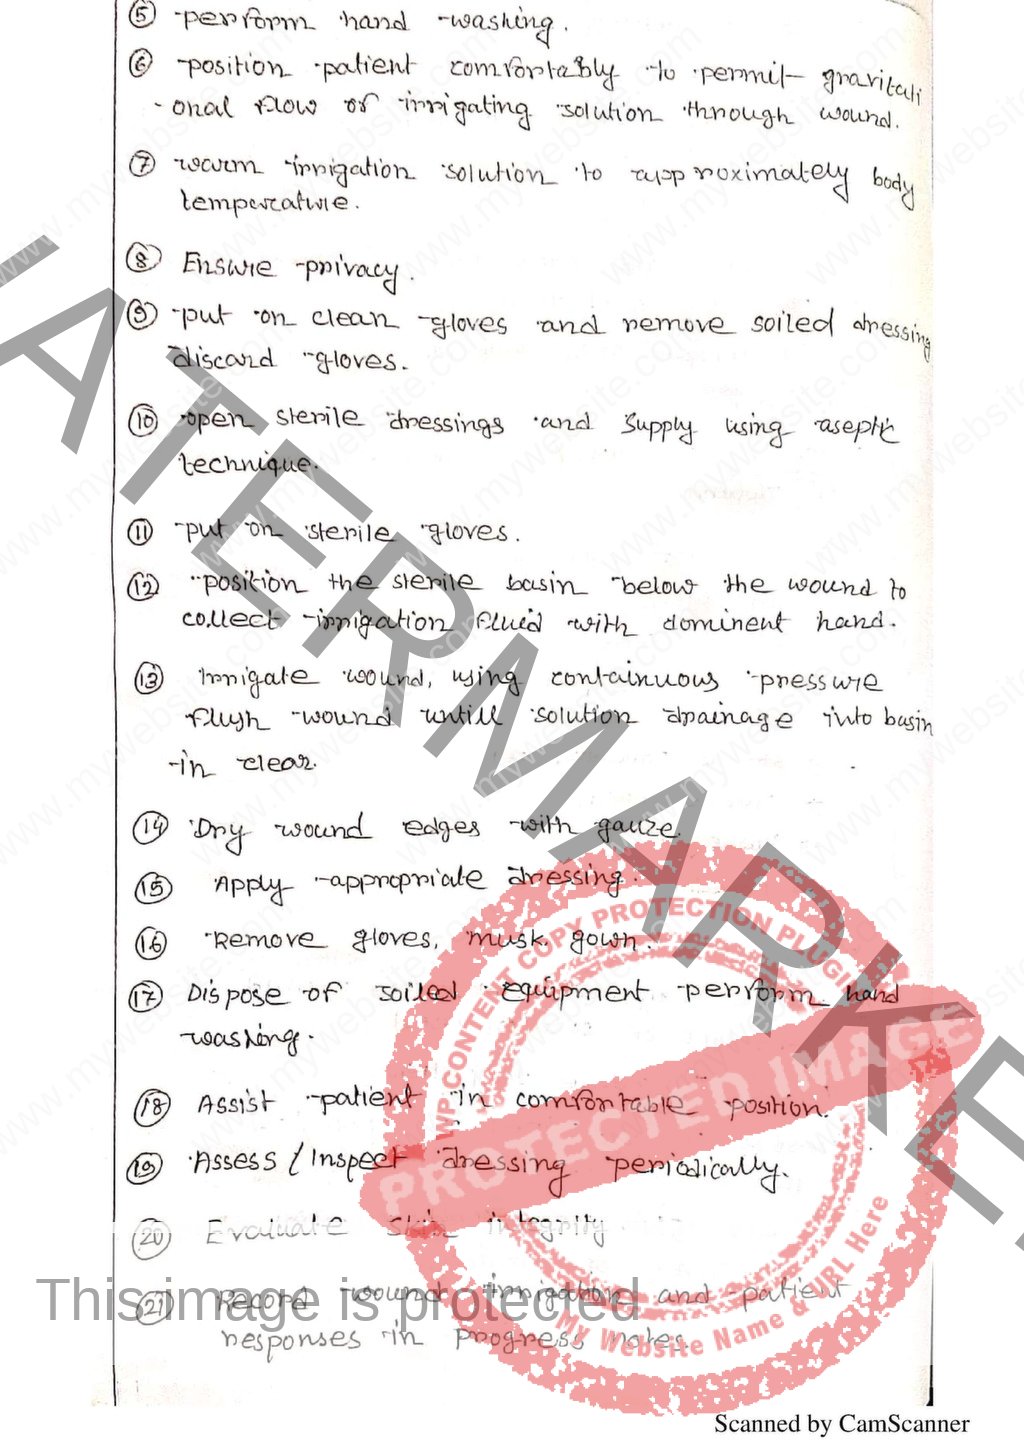 ⑤ perform hand washing.
⑥ position patient comfortably to permit gravitati
- onal flow of irrigating solution through wound.
⑦ warm irrigation solution to approximately body
temperature.
⑧ Ensure privacy.
⑨ put on clean gloves and remove soiled dressing
discard gloves.
⑩ open sterile dressings and supply using aseptic
technique.
⑪ put on sterile gloves.
⑫ position the sterile basin below the wound to
collect irrigation fluid with dominent hand.
⑬ Irrigate wound, using containuous pressure
flush wound untill solution drainage into basin
in clear.
⑭ Dry wound edges with gauze.
⑮ Apply appropriate dressing.
⑯ Remove gloves, musk, gown.
⑰ Dispose of soiled equipment perform hand
washing.
⑱ Assist patient in comfortable position.
⑲ Assess / Inspect dressing periodically.
⑳ Evaluate skin integrity
㉑ Record wound irrigation and patient
responses in progress notes.
This image is protected
WATERMARKED
WP CONTENT COPY PROTECTION PLUGIN
PROTECTED IMAGE
My Website Name & URL Here
www.mywebsite.com
Scanned by CamScanner